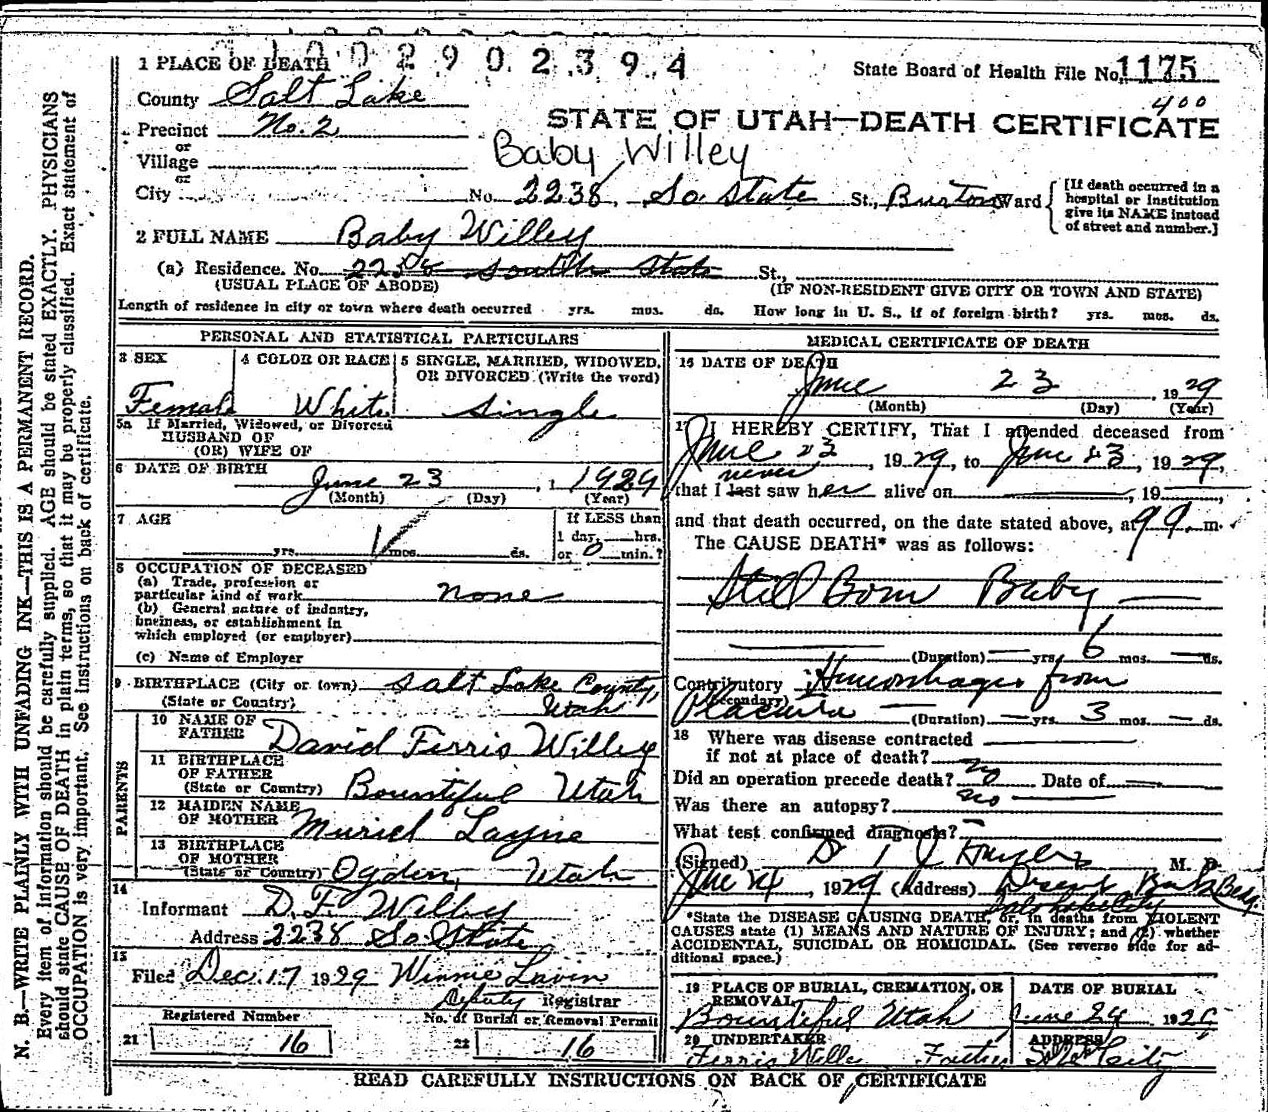 0 0 2 9 0 2 3 9 4
1 PLACE OF DEATH
State Board of Health File No. 1175
County Salt Lake
400
Precinct No. 2
STATE OF UTAH—DEATH CERTIFICATE
or
Baby Willey
Village
or
City No. 2238, So. State St., Burton Ward
[If death occurred in a
hospital or institution
give its NAME instead
of street and number.]
2 FULL NAME Baby Willey
(a) Residence. No. 2238 South State St.,
(USUAL PLACE OF ABODE) (IF NON-RESIDENT GIVE CITY OR TOWN AND STATE)
Length of residence in city or town where death occurred yrs. mos. ds. How long in U. S., if of foreign birth? yrs. mos. ds.
PERSONAL AND STATISTICAL PARTICULARS
3 SEX
Female
4 COLOR OR RACE
White
5 SINGLE, MARRIED, WIDOWED,
OR DIVORCED (Write the word)
Single
5a If Married, Widowed, or Divorced
HUSBAND OF
(OR) WIFE OF
6 DATE OF BIRTH
June 23, 1929
(Month) (Day) (Year)
7 AGE
yrs. mos. ds.
If LESS than
1 day, hrs.
or 0 min.?
8 OCCUPATION OF DECEASED
(a) Trade, profession or
particular kind of work none
(b) General nature of industry,
business, or establishment in
which employed (or employer)
(c) Name of Employer
9 BIRTHPLACE (City or town) Salt Lake County,
(State or Country) Utah
PARENTS
10 NAME OF
FATHER David Ferris Willey
11 BIRTHPLACE
OF FATHER
(State or Country) Bountiful Utah
12 MAIDEN NAME
OF MOTHER Muriel Layne
13 BIRTHPLACE
OF MOTHER
(State or Country) Ogden, Utah
14
Informant D. F. Willey
Address 2238 So. State
15
Filed Dec. 17 1929 Winnie Lavin
Deputy Registrar
Registered Number No. of Burial or Removal Permit
21 16 22 16
MEDICAL CERTIFICATE OF DEATH
16 DATE OF DEATH
June 23 1929
(Month) (Day) (Year)
17 I HEREBY CERTIFY, That I attended deceased from
June 23, 1929, to June 23, 1929,
never
that I last saw her alive on , 19
and that death occurred, on the date stated above, at 9 m.
The CAUSE DEATH* was as follows:
Still Born Baby
(Duration) yrs. 6 mos. ds.
Contributory Hemorrhages from
(Secondary)
Placenta (Duration) yrs. 3 mos. ds.
18 Where was disease contracted
if not at place of death?
Did an operation precede death? no Date of
Was there an autopsy? no
What test confirmed diagnosis?
(Signed) M. D.
June 24, 1929 (Address) Deseret Bank Bldg
Salt Lake City
*State the DISEASE CAUSING DEATH, or, in deaths from VIOLENT
CAUSES state (1) MEANS AND NATURE OF INJURY; and (2) whether
ACCIDENTAL, SUICIDAL OR HOMICIDAL. (See reverse side for ad-
ditional space.)
19 PLACE OF BURIAL, CREMATION, OR
REMOVAL
Bountiful Utah
DATE OF BURIAL
June 24 1929
20 UNDERTAKER
Ferris Willey Father
ADDRESS
Salt Lake City
READ CAREFULLY INSTRUCTIONS ON BACK OF CERTIFICATE
N. B.—WRITE PLAINLY WITH UNFADING INK—THIS IS A PERMANENT RECORD.
Every item of information should be carefully supplied. AGE should be stated EXACTLY. PHYSICIANS
should state CAUSE OF DEATH in plain terms, so that it may be properly classified. Exact statement of
OCCUPATION is very important. See instructions on back of certificate.